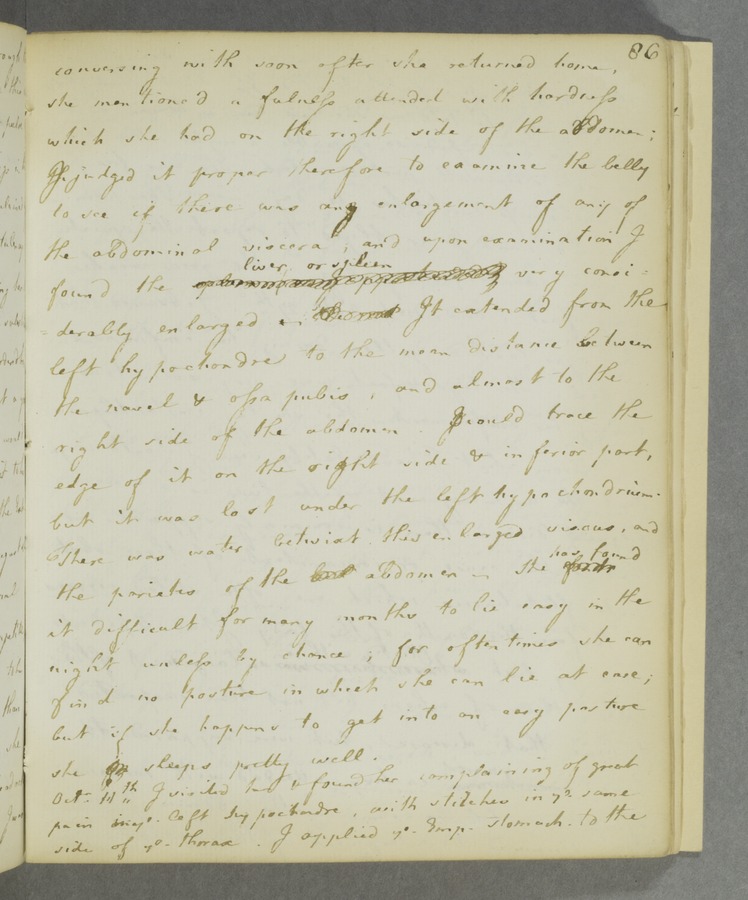 86
conversing with soon after she returned home,
she mentioned a fulness attended with hardness
which she had on the right side of the abdomen;
I judged it proper therefore to examine the belly
to see if there was any enlargement of any of
the abdominal viscera; and upon examination I
liver, or spleen
found the very consi=
=derably enlarged It extended from the
left hypochondre to the mean distance between
the navel & ossa pubis, and almost to the
right side of the abdomen. I could trace the
edge of it on the right side & inferior part,
but it was lost under the left hypochondrium.
There was water betwixt this enlarged viscus, and
the parietes of the abdomen She has found
it difficult for many months to lie easy in the
night unless by chance; for oftentimes she can
find no posture in which she can lie at ease;
but if she happens to get into an easy posture
she sleeps pretty well.
Octr. 11th I visited her & found her complaining of great
pain in ye. left hypochondre, with stitches in ye. same
side of ye. thorax. I applied ye. Emp. stomach. to the